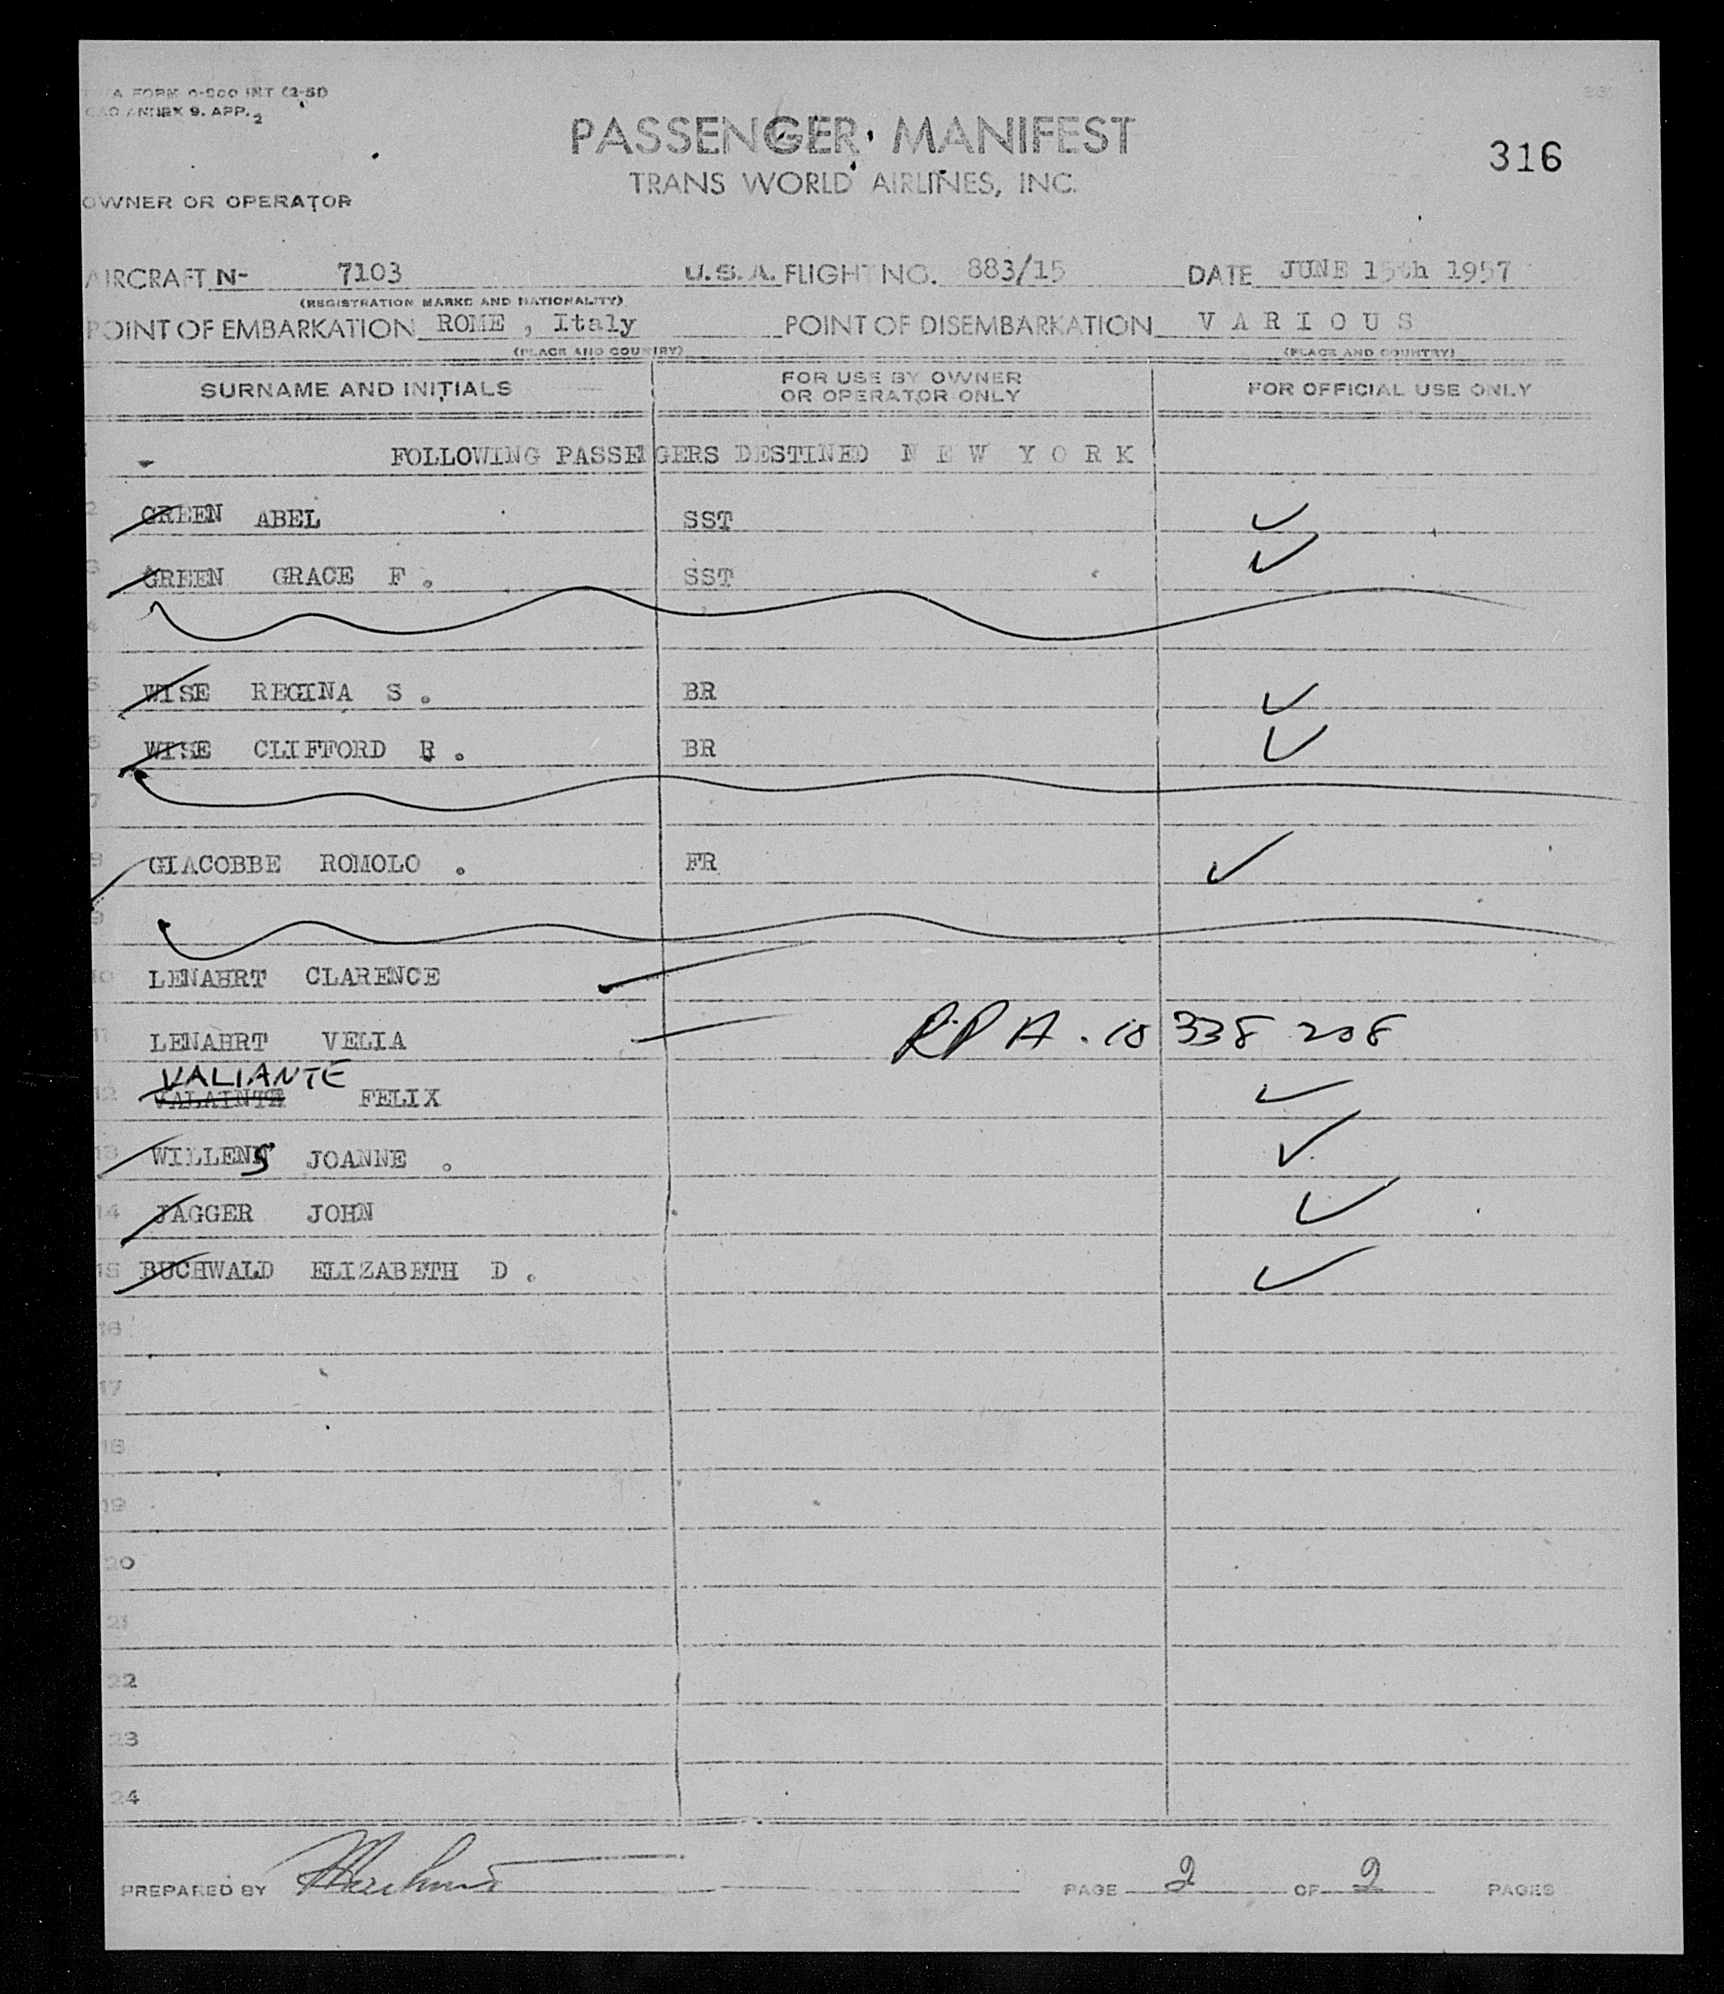 A FORM 0-900 INT (2-51)
ANNEX 9. APP. 2
PASSENGER MANIFEST
316
TRANS WORLD AIRLINES, INC.
OWNER OR OPERATOR
AIRCRAFT N- 7103 U.S.A. FLIGHT NO. 883/15 DATE JUNE 15th 1957
(REGISTRATION MARKS AND NATIONALITY)
POINT OF EMBARKATION ROME , Italy POINT OF DISEMBARKATION V A R I O U S
(PLACE AND COUNTRY) (PLACE AND COUNTRY)
SURNAME AND INITIALS FOR USE BY OWNER OR OPERATOR ONLY FOR OFFICIAL USE ONLY
FOLLOWING PASSENGERS DESTINED N E W Y O R K
2 GREEN ABEL SST ✓
3 GREEN GRACE F . SST ✓
4
5 WISE REGINA S . BR ✓
6 WISE CLIFFORD R . BR ✓
7
8 GIACOBBE ROMOLO . FR ✓
9
10 LENAHRT CLARENCE
11 LENAHRT VELIA RP A. 10 338 208
VALIANTE
12 VALAINTE FELIX ✓
13 WILLENS JOANNE . ✓
14 JAGGER JOHN ✓
15 BUCHWALD ELIZABETH D . ✓
16
17
18
19
20
21
22
23
24
PREPARED BY PAGE 2 OF 2 PAGES